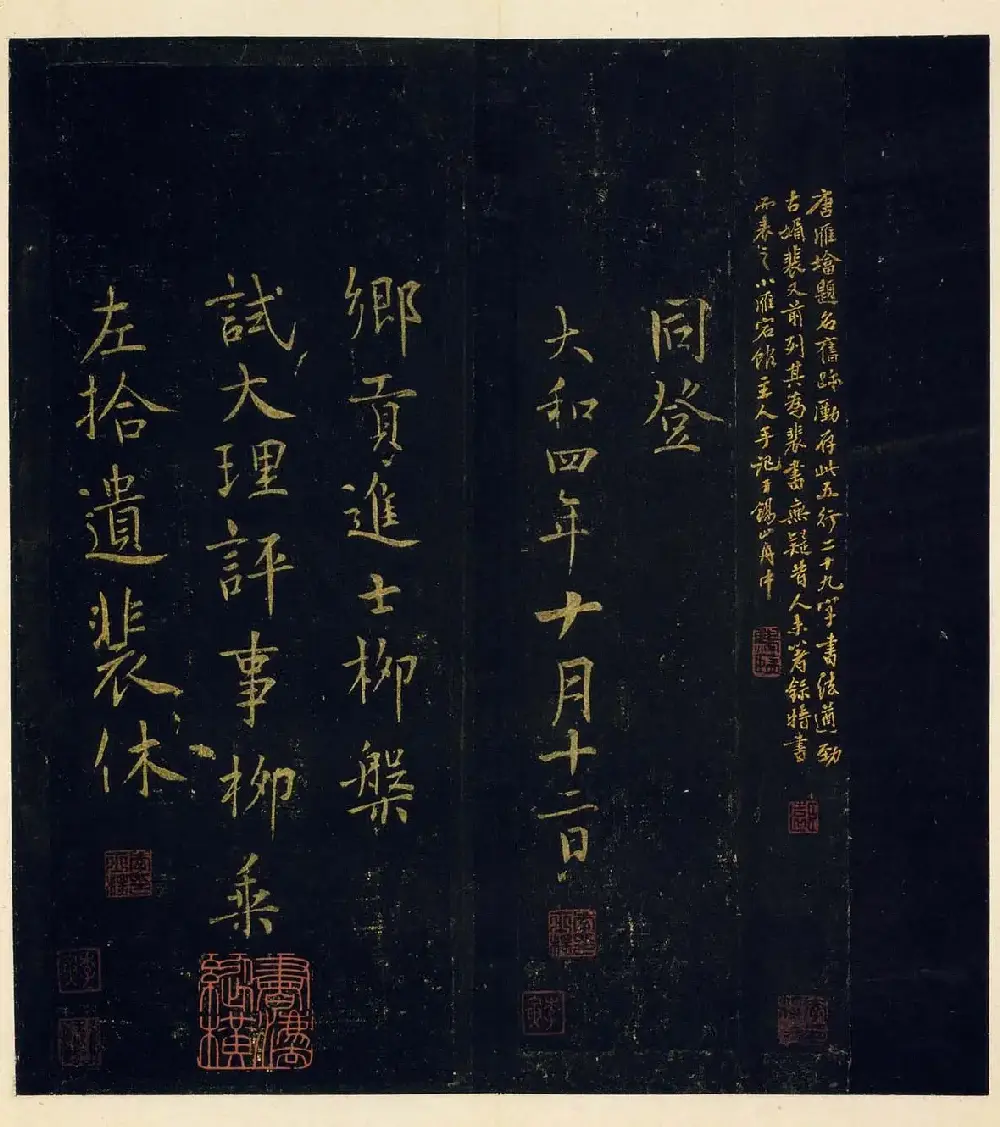 唐雁墖題名舊跡存此五行二十九字書法遒勁
古媚裴又前列其為裴書無疑昔人未箸錄特書
而表之小雁宕館主人手記于錫山舟中
同登
大和四年十月十二日
鄉貢進士柳槃
試大理評事柳乘
左拾遺裴休